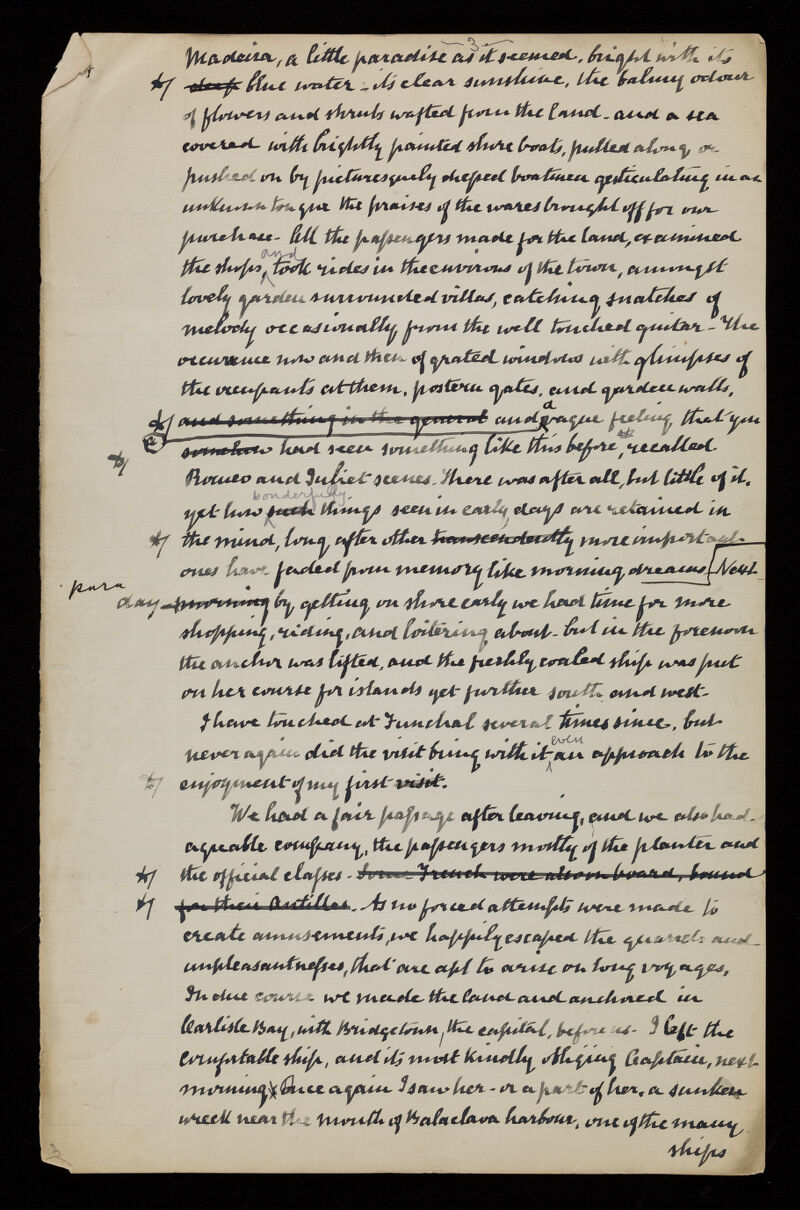 -3-
Madeira, a little paradise as it seemed, bright with its
deep blue water - its clear sunshine, the balmy odour
of flowers and shrubs wafted from the land - and a sea
covered with brightly painted shore boats, pulled along or
pushed on by picturesquely dressed boatmen gesticulating in an
unknown tongue the praises of the wares brought off for our
purchase - All the passengers made for the land, examined
the shops, and took rides in the environs of the town, amongst
lovely garden surrounded villas, catching snatches of
melody occasionally from the well touched guitar - The
occurence now and then of grated windows with glimpses of
the occupants at them, postern gates, and garden walls,
and something in the general and a vague feeling that you
somehow had seen something like this before, recalled
Romeo and Juliet scenes. There was after all, but little of it,
yet how such wonderfully things seen in early days are retained in
the mind, long after other transcendently more important
ones have faded from memory like morning dreams. [Next
para
day - morning by getting on shore early we had time for more
shopping, riding, and loitering about - but in the forenoon
the anchor was lifted, and the freshly coaled ship was put
on her course for islands yet further south and west -
I have touched at Funchal several times since, but
never again did the visit bring with it even an approach to the
enjoyment of my first visit.
We had a fair passage after leaving, and we also had
agreable company, the passengers mostly of the planter and
the official classes - Some French were also on board, bound
for their Antilles. - As no forced attempts were made to
create amusements, we happily escaped the quarrels and
unpleasantnesses, that are apt to arise on long voyages,
In due course we made the land and anchored in
Carlisle Bay, with Bridgetown, the capital, before us - I left the
comfortable ship, and its most kindly obliging Captain, next
morning. Once again I saw her - or a part of her, a sunken
wreck near the mouth of Balaclava harbour, one of the many
ships
3